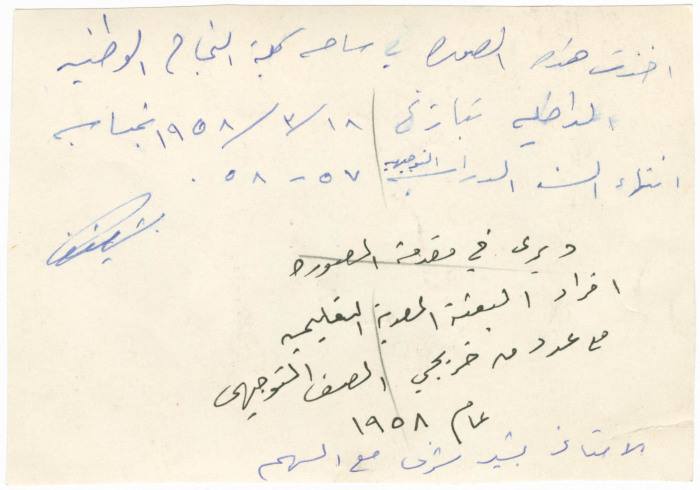 اخذت هذه الصورة في ساحة كلية النجاح الوطنية
الداخلي بتاريخ ١٨/٣/١٩٥٨ بمناسبة
انتهاء السنة الدراسية التوجيهية ٥٧-٥٨.
ويرى في مقدمة الصورة
افراد البعثة المصرية التعليمية
مع عدد من خريجي الصف التوجيهي
عام ١٩٥٨
الاستاذ بشير شرف مع السهم